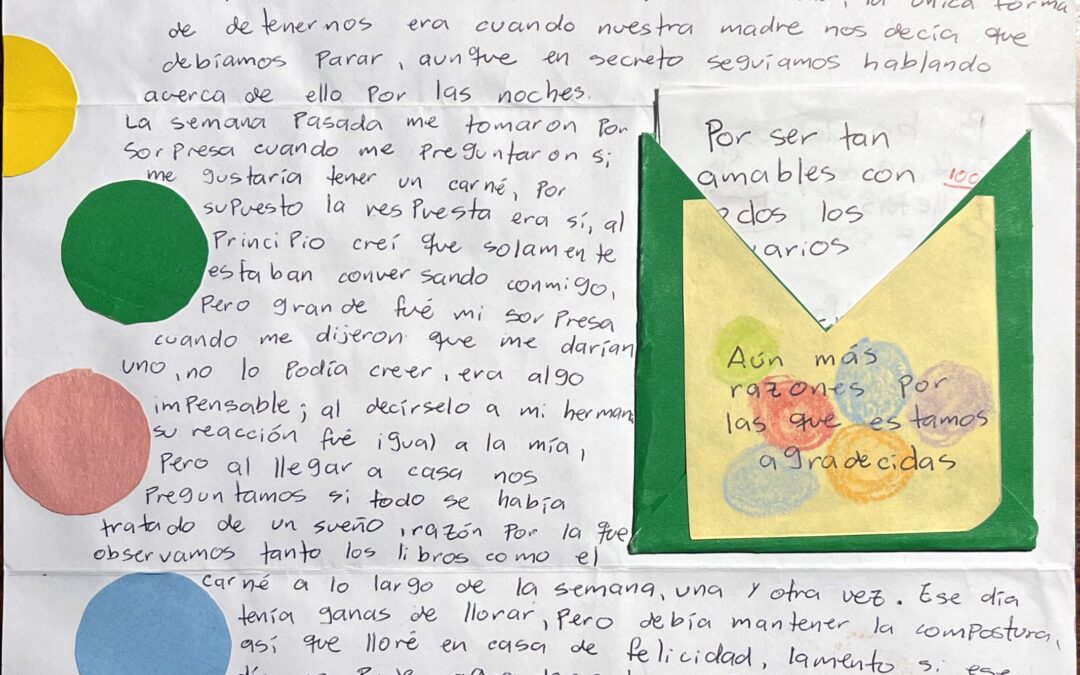 la única forma
de detenernos era cuando nuestra madre nos decía que
debíamos Parar, aunque en secreto seguíamos hablando
acerca de ello Por las noches.
La semana Pasada me tomaron Por
sorpresa cuando me Preguntaron si
me gustaría tener un carné, Por
supuesto la respuesta era sí, al
Principio creí que solamente
estaban conversando conmigo,
Pero grande fué mi sorpresa
cuando me dijeron que me darían
uno, no lo Podía creer, era algo
impensable; al decírselo a mi herman
su reacción fué igual a la mía,
Pero al llegar a casa nos
Preguntamos si todo se había
tratado de un sueño, razón Por la que
observamos tanto los libros como el
carné a lo largo de la semana, una y otra vez. Ese día
tenía ganas de llorar, Pero debía mantener la compostura,
así que lloré en casa de felicidad, lamento si ese
Por ser tan
amables con 100
dos los
arios
Aún más
razones Por
las que estamos
agradecidas